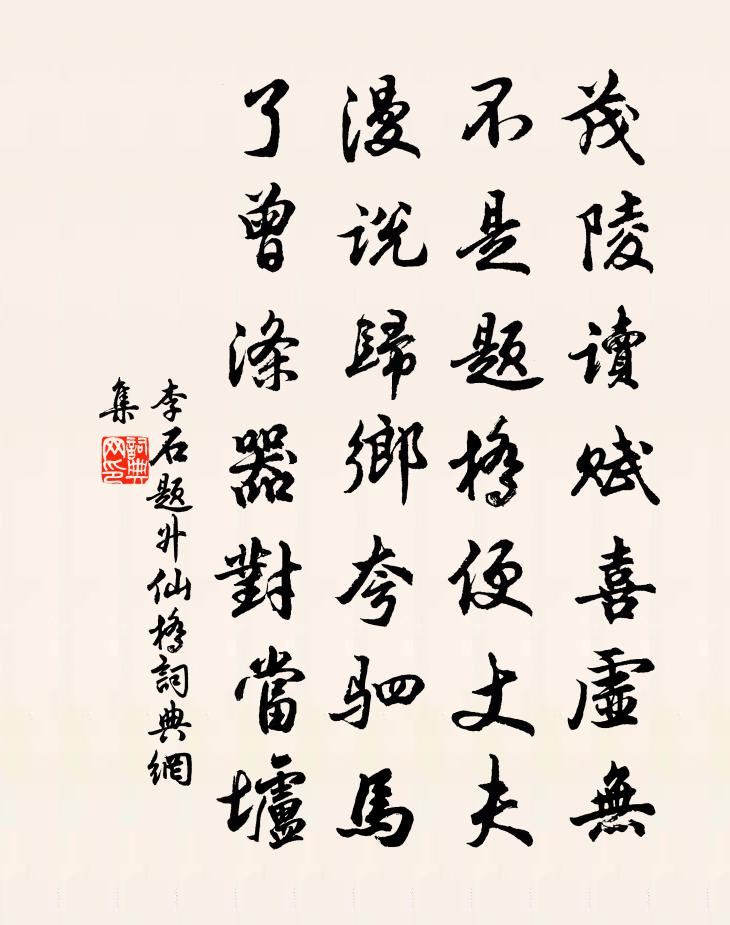 茂陵讀賦喜虛無
不是題橋便丈夫
漫說歸鄉夸駟馬
了曾滌器對當壚
李石題升仙橋詞典網
集
詞典
网印